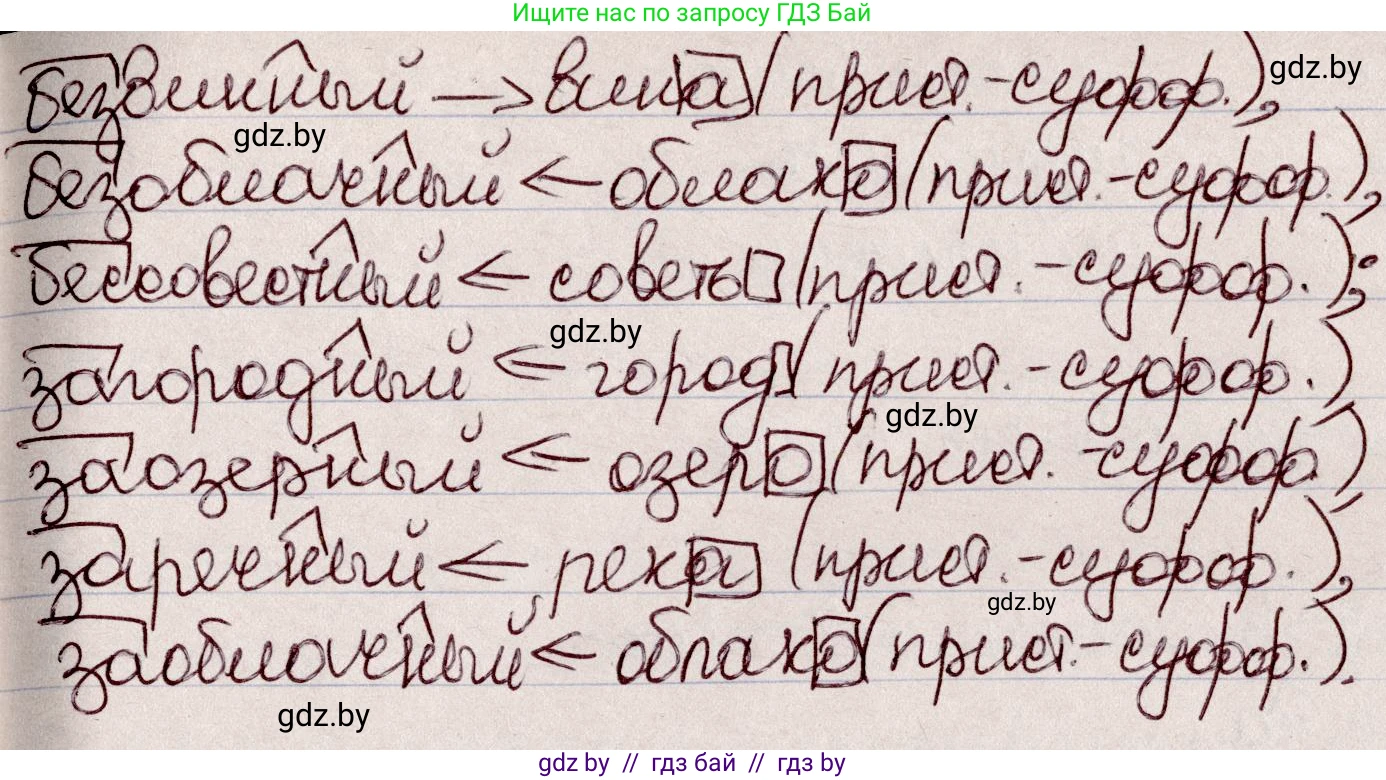 Ищите нас по запросу ГДЗ Бай
безвинный → вина (прист.-суфф.),
gdz.by
gdz.by
безоблачный ← облако (прист.-суфф.),
бессовестный ← совесть (прист.-суфф.);
gdz.by
загородный ← город (прист.-суфф.)
gdz.by
заозерный ← озеро (прист.-суфф.)
заречный ← река (прист.-суфф.),
gdz.by
заоблачный ← облако (прист.-суфф.).
gdz.by
gdz by // гдз бай // гдз by